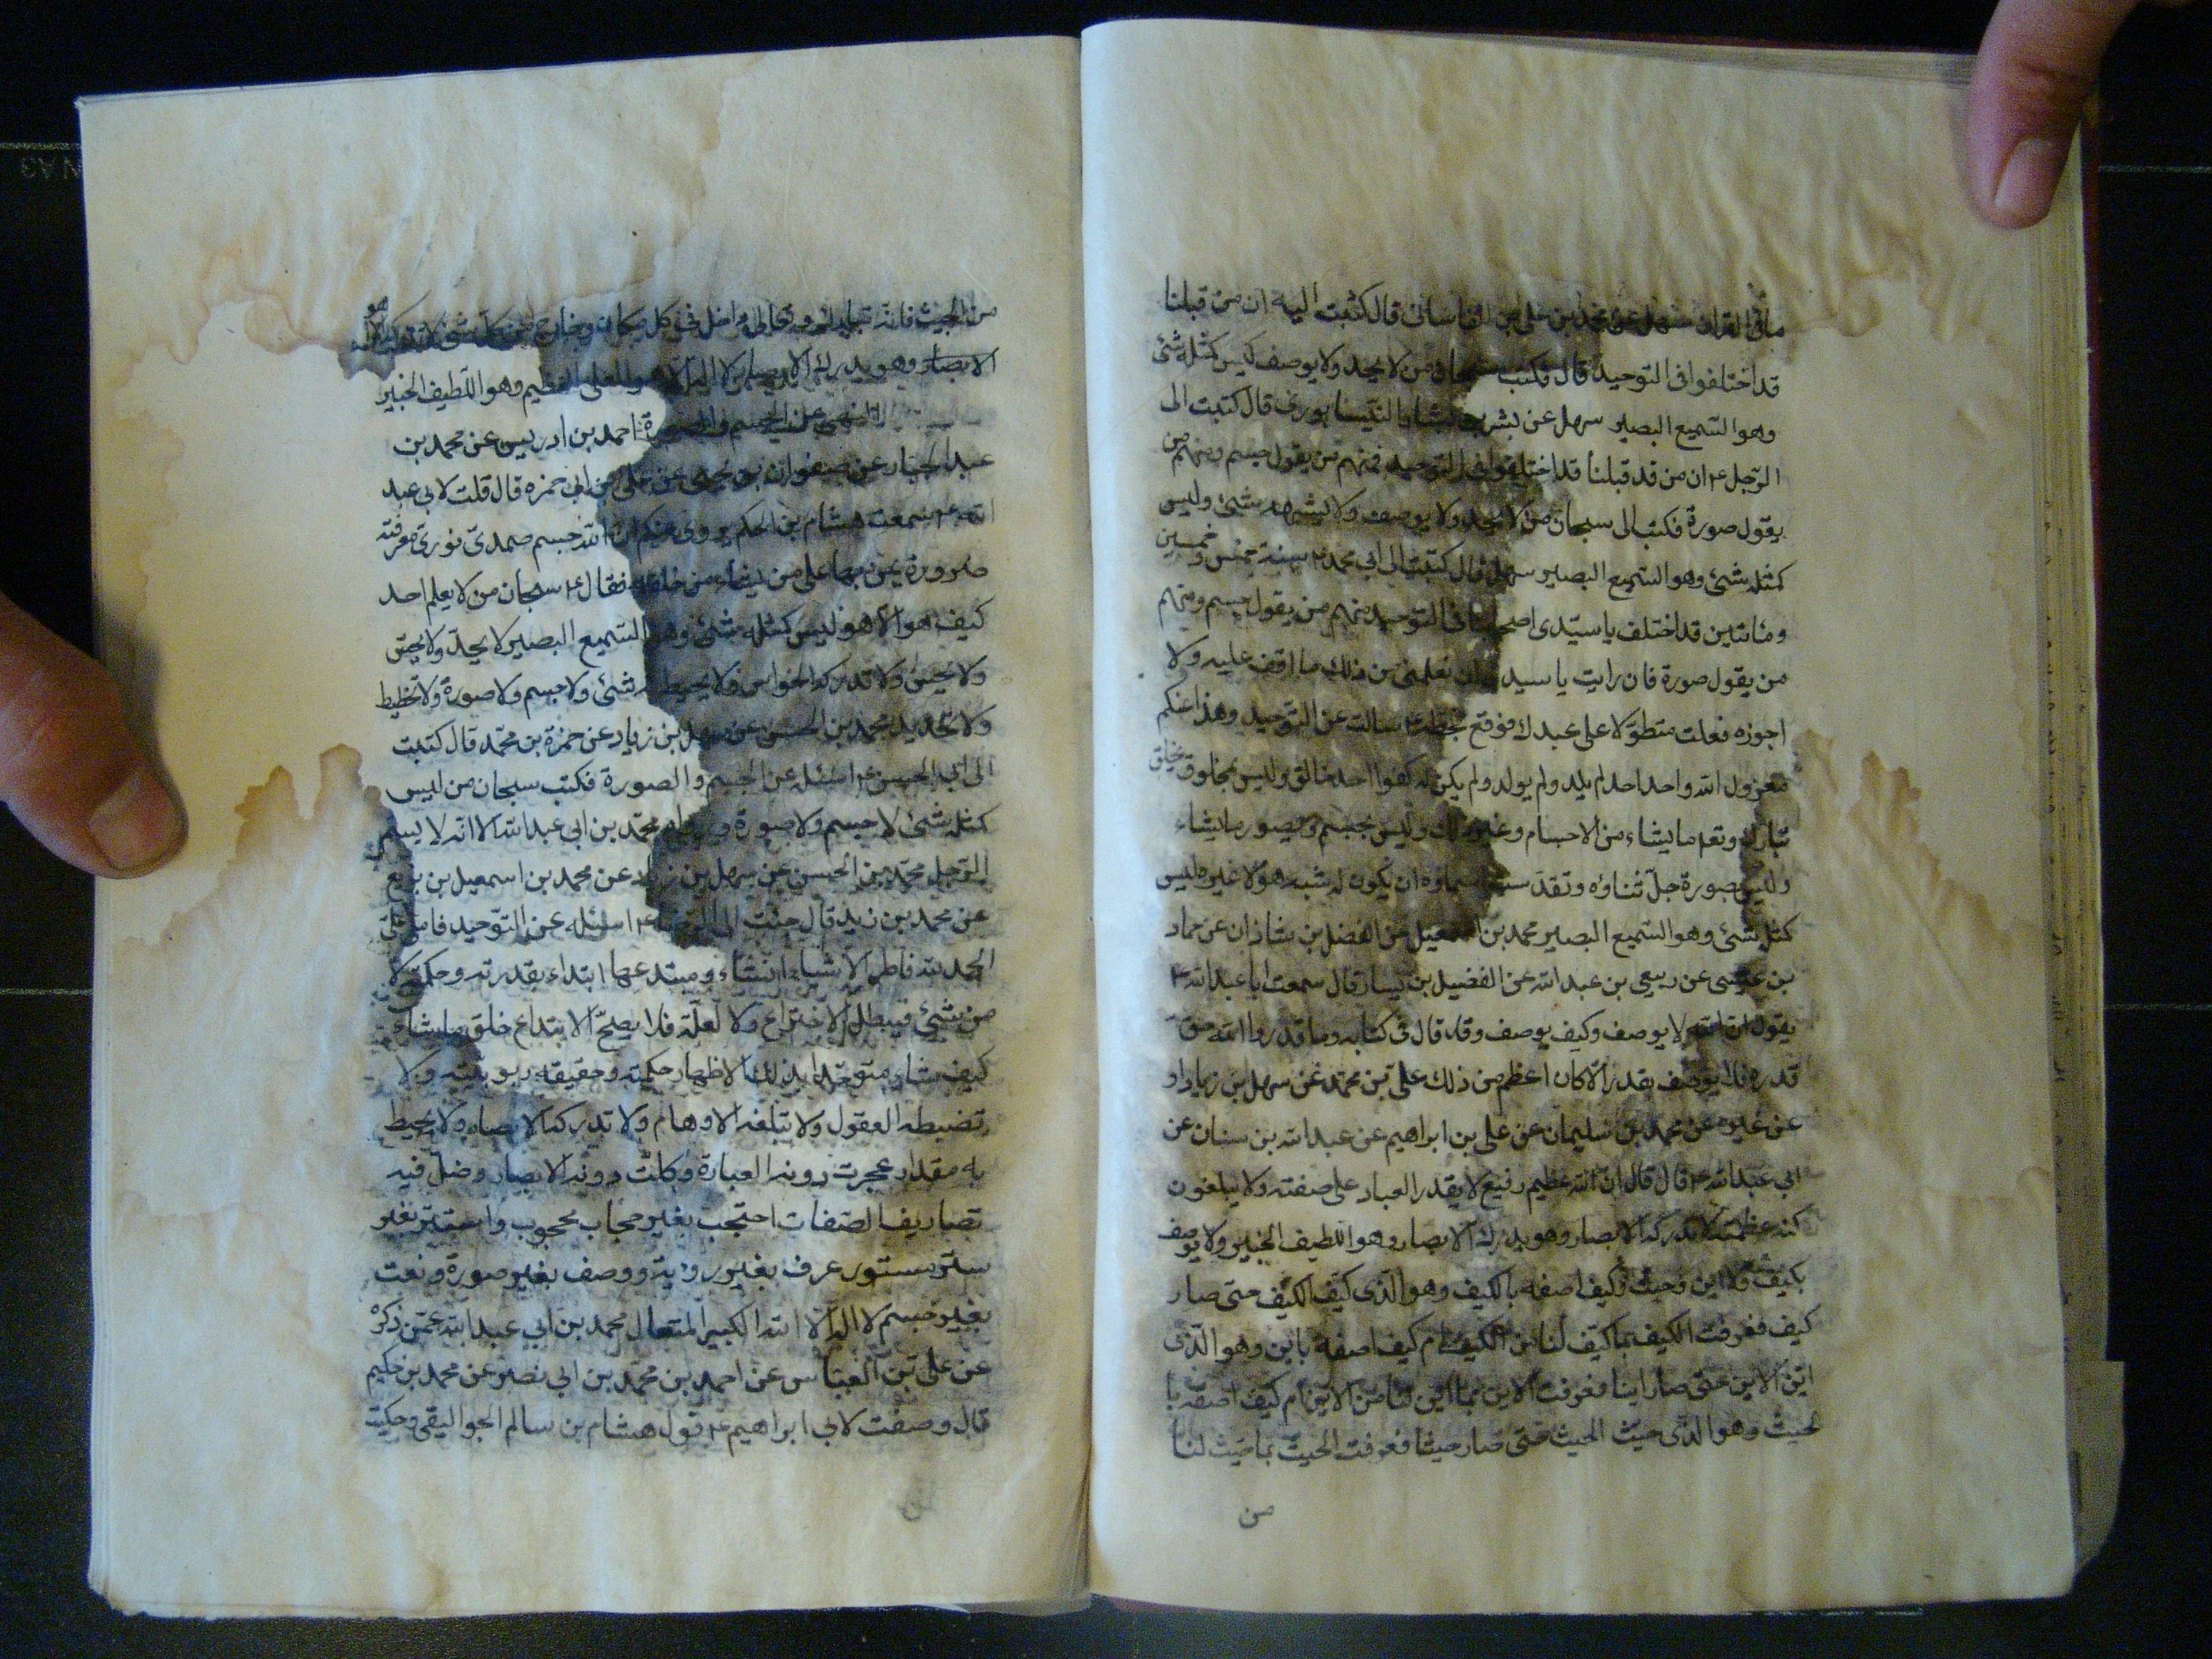 ما في القران سهل عن محمد بن علي القاساني قال كتبت اليه ان من قبلنا
قد اختلفوا في التوحيد قال فكتب سبحان من لا يحد ولا يوصف ليس كمثله شئ
وهو السميع البصير سهل عن بشر بن بشار النيسابوري قال كتبت الى
الرجل ع ان من قد قبلنا قد اختلفوا في التوحيد فمنهم من يقول جسم ومنهم من
يقول صورة فكتب الى سبحان من لا يحد ولا يوصف ولا يشبهه شئ وليس
كمثله شئ وهو السميع البصير سهل قال كتبت الى ابي محمد ع سنة خمس وخمسين
ومائتين قد اختلف يا سيدى اصحابنا في التوحيد منهم من يقول جسم ومنهم
من يقول صورة فان رايت يا سيدى ان تعلمني من ذلك ما اقف عليه ولا
اجوزه فعلت متطولا على عبدك فوقع بخطه ع سالت عن التوحيد وهذا عنكم
معزول الله واحد احد لم يلد ولم يولد ولم يكن له كفوا احد خالق وليس بمخلوق يخلق
تبارك وتعا ما يشاء من الاجسام وغير ذلك وليس بجسم ويصور ما يشاء
وليس بصورة جل ثناؤه وتقدست اسماؤه ان يكون له شبه هو لا غيره ليس
كمثله شئ وهو السميع البصير محمد بن اسمعيل عن الفضل بن شاذان عن حماد
بن عيسى عن ربعي بن عبد الله عن الفضيل بن يسار قال سمعت ابا عبد الله ع
يقول ان الله لا يوصف وكيف يوصف وقد قال في كتابه وما قدروا الله حق
قدره فلا يوصف بقدر الا كان اعظم من ذلك على بن محمد عن سهل بن زياد او
عن غيره عن محمد بن سليمان عن على بن ابراهيم عن عبد الله بن سنان عن
ابي عبد الله ع قال قال ان الله عظيم رفيع لا يقدر العباد على صفته ولا يبلغون
كنه عظمته لا تدركه الابصار وهو يدرك الابصار وهو اللطيف الخبير ولا يوصف
بكيف ولا اين وحيث وكيف اصفه بالكيف وهو الذى كيف الكيف حتى صار
كيف فعرفت الكيف بما كيف لنا من الكيف ام كيف اصفه باين وهو الذى
اين الاين حتى صار اينا فعرفت الاين بما اين لنا من الاين ام كيف اصفه با
لحيث وهو الذى حيث الحيث حتى صار حيثا فعرفت الحيث بما حيث لنا
من
من الحيث فانه تبارك وتعالى داخل في كل مكان وخارج من كل شئ لا تدركه
الابصار وهو يدرك الابصار لا اله الا هو العلى العظيم وهو اللطيف الخبير
النهى عن الجسم والصورة احمد بن ادريس عن محمد بن
عبد الجبار عن صفوان بن يحيى عن على بن ابي حمزه قال قلت لابي عبد
الله ع سمعت هشام بن الحكم يروى عنكم ان الله جسم صمدى نورى معرفته
ضرورة يمن بها على من يشاء من خلقه فقال ع سبحان من لا يعلم احد
كيف هو الا هو ليس كمثله شئ وهو السميع البصير لا يحد ولا يحس
ولا يجس ولا تدركه الحواس ولا يحيط به شئ ولا جسم ولا صورة ولا تخطيط
ولا تحديد محمد بن الحسن عن سهل بن زياد عن حمزة بن محمد قال كتبت
الى ابي الحسن ع اسئله عن الجسم والصورة فكتب سبحان من ليس
كمثله شئ لا جسم ولا صورة ورواه محمد بن ابي عبد الله الا انه لا يسم
الرجل محمد بن الحسن عن سهل بن زياد عن محمد بن اسمعيل بن بزيع
عن محمد بن زيد قال جئت الى الرضا ع اسئله عن التوحيد فاملى على
الحمد لله فاطر الاشياء انشاء ومبتدعها ابتداء بقدرته وحكمته لا
من شئ فيبطل الاختراع ولا لعلة فلا يصح الابتداع خلق ما شاء
كيف شاء متوحدا بذلك لاظهار حكمته وحقيقة ربوبيته ولا
تضبطه العقول ولا تبلغه الاوهام ولا تدركه الابصار ولا يحيط
به مقدار عجزت دونه العبارة وكلت دونه الابصار وضل فيه
تصاريف الصفات احتجب بغير حجاب محجوب واستتر بغير
ستر مستور عرف بغير رؤية ووصف بغير صورة ونعت
بغير جسم لا اله الا الله الكبير المتعال محمد بن ابي عبد الله عمن ذكره
عن على بن العباس عن احمد بن محمد بن ابي نصر عن محمد بن حكيم
قال وصفت لابي ابراهيم ع قول هشام بن سالم الجواليقى وحكيت